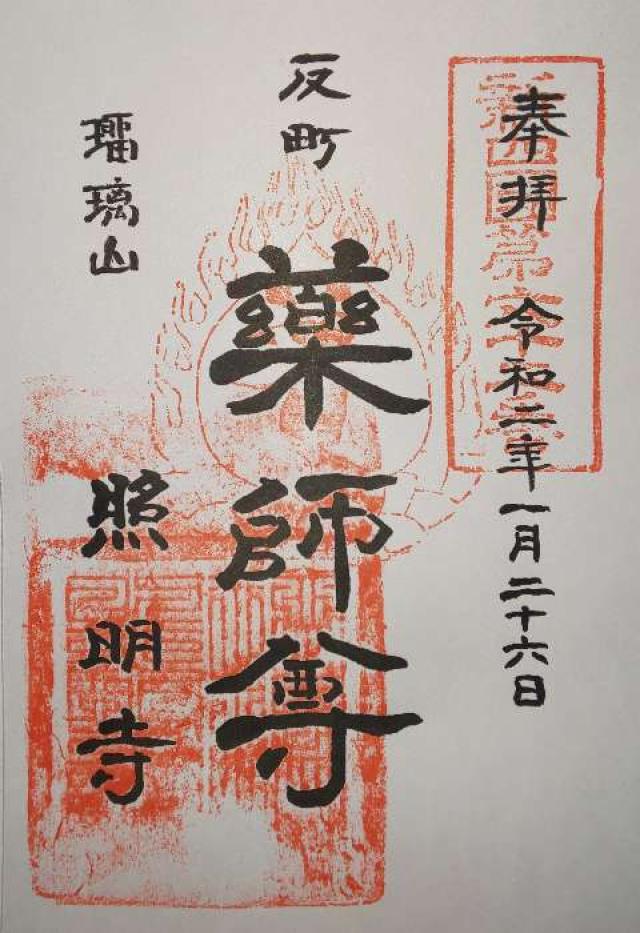 奉拝 令和二年一月二十六日
反町
藥師尊
瑠璃山
照明寺